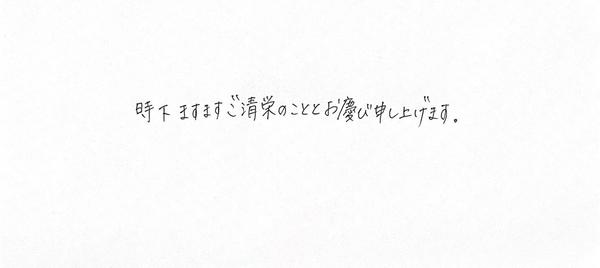 時下ますますご清栄のこととお慶び申し上げます。